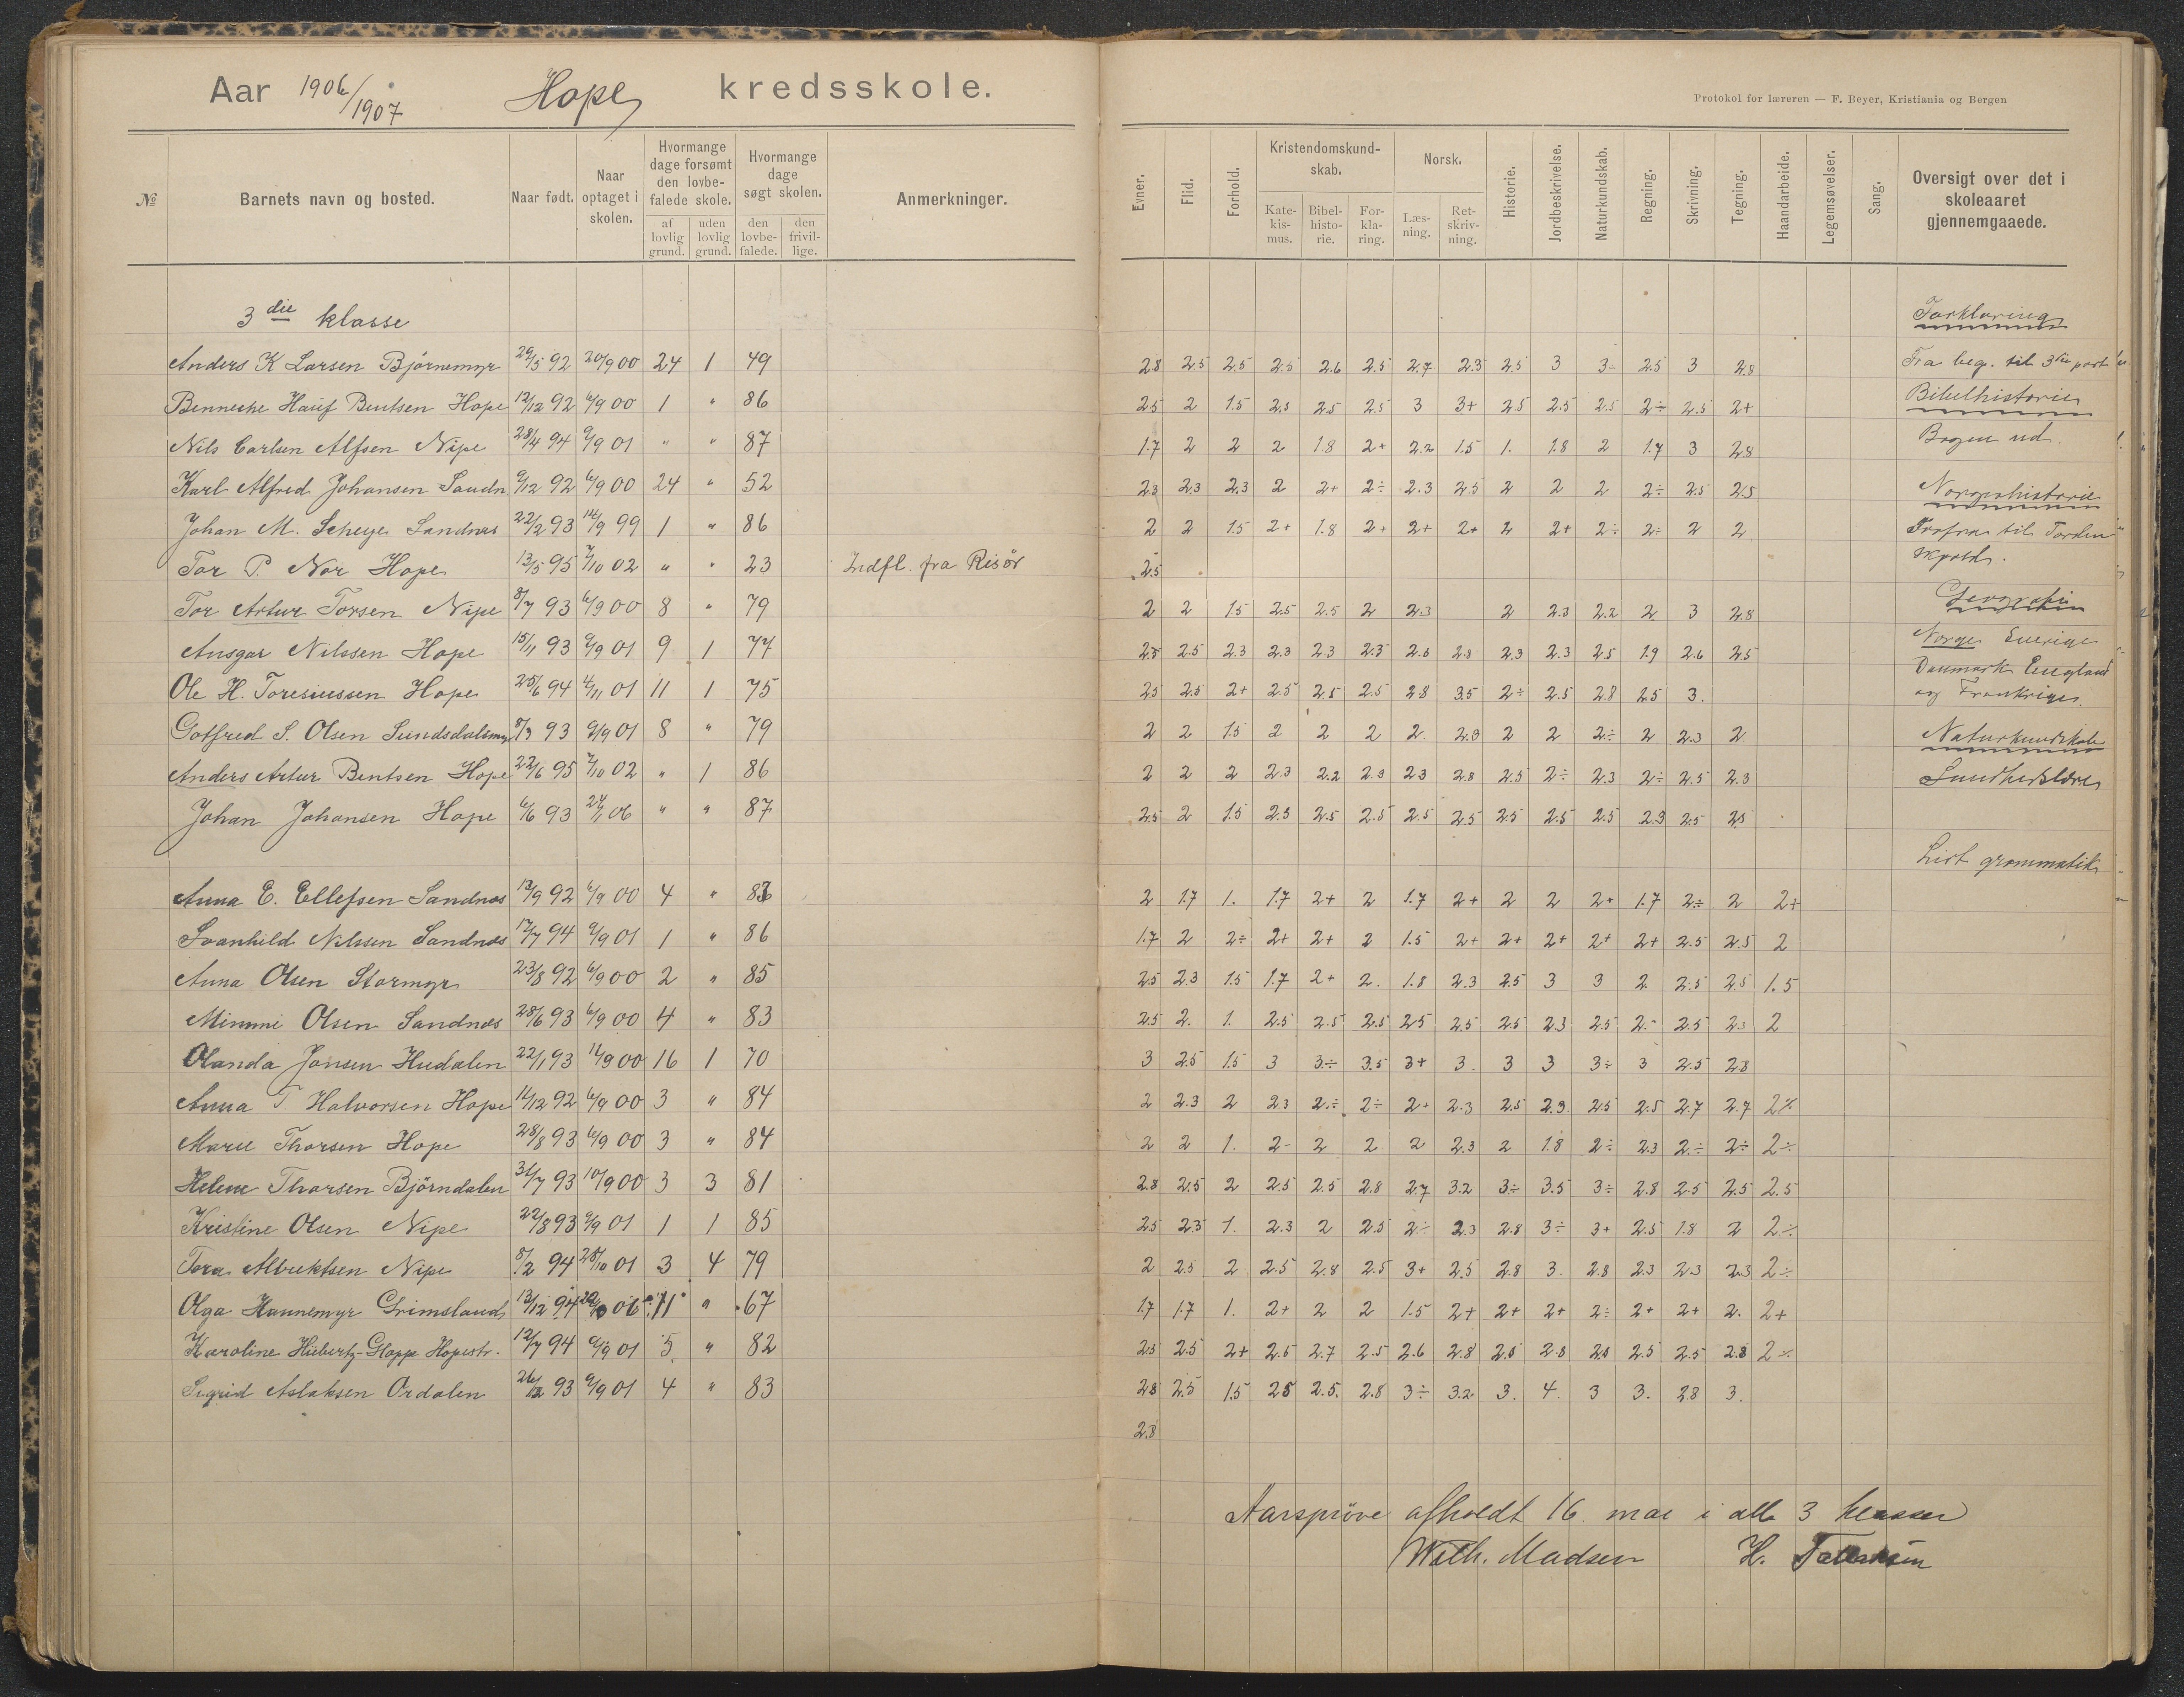 Aar 1906/1907 Hope kredsskole.
Protokol for læreren — F. Beyer, Kristiania og Bergen
№ Barnets navn og bosted. Naar født. Naar optaget i skolen. Hvormange dage forsømt den lovbefalede skole. af lovlig grund. uden lovlig grund. Hvormange dage søgt skolen. den lovbefalede. den frivillige. Anmerkninger.
Evner. Flid. Forhold. Kristendomskundskab. Katekismus. Bibelhistorie. Forklaring. Norsk. Læsning. Retskrivning. Historie. Jordbeskrivelse. Naturkundskab. Regning. Skrivning. Tegning. Haandarbeide. Legemsøvelser. Sang. Oversigt over det i skoleaaret gjennemgaaede.
3die klasse
Anders K Larsen Bjørnemyr 29/5 92 20/9 00 24 1 49 2.8 2.5 2.5 2.5 2.6 2.5 2.7 2.3 2.5 3 3 2.5 3 2.8
Benneche Hauf Bentsen Hope 12/12 92 6/9 00 1 " 86 2.5 2 1.5 2.5 2.5 2.5 3 3+ 2.5 2.5 2.5 2÷ 2.5 2+
Nils Carlsen Alfsen Nipe 28/4 94 9/9 01 " " 87 1.7 2 2 2 1.8 2+ 2.2 1.5 1. 1.8 2 1.7 3 2.8
Karl Alfred Johansen Sandn 9/12 92 6/9 00 24 " 52 2.3 2.3 2.3 2 2+ 2÷ 2.3 2.5 2 2 2 2÷ 2.5 2.5
Johan M. Scheye Sandnes 22/2 93 14/9 99 1 " 86 2 2 1.5 2+ 1.8 2+ 2+ 2+ 2 2+ 2÷ 2÷ 2 2
Tor P. Nor Hope 13/5 95 7/10 02 " " 23 Indfl. fra Risør 2.5
Tor Artur Torsen Nipe 8/7 93 6/9 00 8 " 79 2 2 1.5 2.5 2.5 2 2.3 2 2.3 2.2 2 3 2.8
Ansgar Nilssen Hope 15/11 93 9/9 01 9 1 77 2.5 2.5 2.3 2.3 2.3 2.3 2.8 2.8 2.3 2.3 2.5 1.9 2.6 2.5
Ole H. Toresiussen Hope 25/6 94 4/11 01 11 1 75 2.5 2.5 2+ 2.5 2.5 2.5 2.8 3.5 2÷ 2.5 2.8 2.5 3.
Gotfred S. Olsen Sundsdalsmyr 8/3 93 9/9 01 8 " 79 2 2 1.5 2 2 2 2 2.3 2 2 2÷ 2 2.3 2
Anders Artur Bentsen Hope 22/6 95 7/10 02 " 1 86 2 2 2 2.3 2.2 2.3 2.3 2.8 2.5 2÷ 2.3 2÷ 2.5 2.3
Johan Johansen Hope 6/6 93 24/1 06 " " 87 2.5 2 1.5 2.3 2.5 2.5 2.5 2.5 2.5 2.5 2.5 2.3 2.5 2.5
Anna E. Ellefsen Sandnes 13/9 92 6/9 00 4 " 83 2 1.7 1. 1.7 2+ 2 1.7 2+ 2 2 2+ 1.7 2÷ 2 2+
Svanhild Nilssen Sandnes 17/7 94 9/9 01 1 " 86 1.7 2 2÷ 2+ 2+ 2 1.5 2+ 2+ 2+ 2+ 2+ 2.5 2.5 2
Anna Olsen Stormyr 23/8 92 6/9 00 2 " 85 2.5 2.3 1.5 1.7 2+ 2. 1.8 2.3 2.5 3 3 2 2.5 2.5 1.5
Mimmi Olsen Sandnes 28/6 93 6/9 00 4 " 83 2.5 2. 1. 2.5 2.5 2.5 2.5 2.5 2.5 2.3 2.5 2.- 2.5 2.3 2
Olanda Jonsen Hudalen 22/1 93 11/9 00 16 1 70 3 2.5 1.5 3 3÷ 3.5 3+ 3. 3 3 3÷ 3 2.5 2.8
Anna T. Halvorsen Hope 11/12 92 6/9 00 3 " 84 2 2.3 2 2.3 2÷ 2÷ 2+ 2.3 2.5 2.3. 2.5 2.5 2.7 2.7 2÷
Marie Thorsen Hope 28/8 93 6/9 00 3 " 84 2 2 1. 2- 2 2 2 2.3 2 1.8 2÷ 2.3 2÷ 2÷ 2÷
Helene Thorsen Bjørndalen 31/7 93 10/9 00 3 3 81 2.8 2.5 2 2.5 2.5 2.8 2.7 3.2 3÷ 3.5 3÷ 2.8 2.5 2.5 2.5
Kristine Olsen Nipe 22/8 93 9/9 01 1 1 85 2.5 2.3 1. 2.3 2 2.5 2÷ 2.3 2.8 3÷ 3+ 2.5 1.8 2 2÷
Tora Albrektsen Nipe 8/2 94 28/10 01 3 4 79 2 2.5 2 2.5 2.8 2.5 3+ 2.5 2.8 3. 2.8 2.3 2.3 2.3 2÷
Olga Hannemyr Grimsland 13/12 94 06 11 " 67 1.7 1.7 1. 2+ 2 2 1.5 2+ 2+ 2+ 2÷ 2+ 2+ 2. 2+
Karoline Hübertz-Glopp Hopestr. 12/7 94 9/9 01 5 " 82 2.5 2.5 2+ 2.5 2.7 2.5 2.6 2.8 2.5 2.8 2.8 2.5 2.5 2.8 2÷
Sigrid Aslaksen Ordalen 26/12 93 9/9 01 4 " 83 2.8 2.5 1.5 2.8 2.5. 2.8 3÷ 3.2 3. 4. 3 3. 2.8 3.
2.8
Forklaring
Fra beg. til 3die part
Bibelhistorie
Bogen ud.
Norgeshistorie
Forfra til Torden-
skjold.
Geografi
Norge Sverige
Danmark England
og Frankrige.
Naturkundskab
Sundhedslære
Lidt grammatik
Aarsprøve afholdt 16. mai i alle 3 klasser
Wilh. Madsen H. Tallaksen